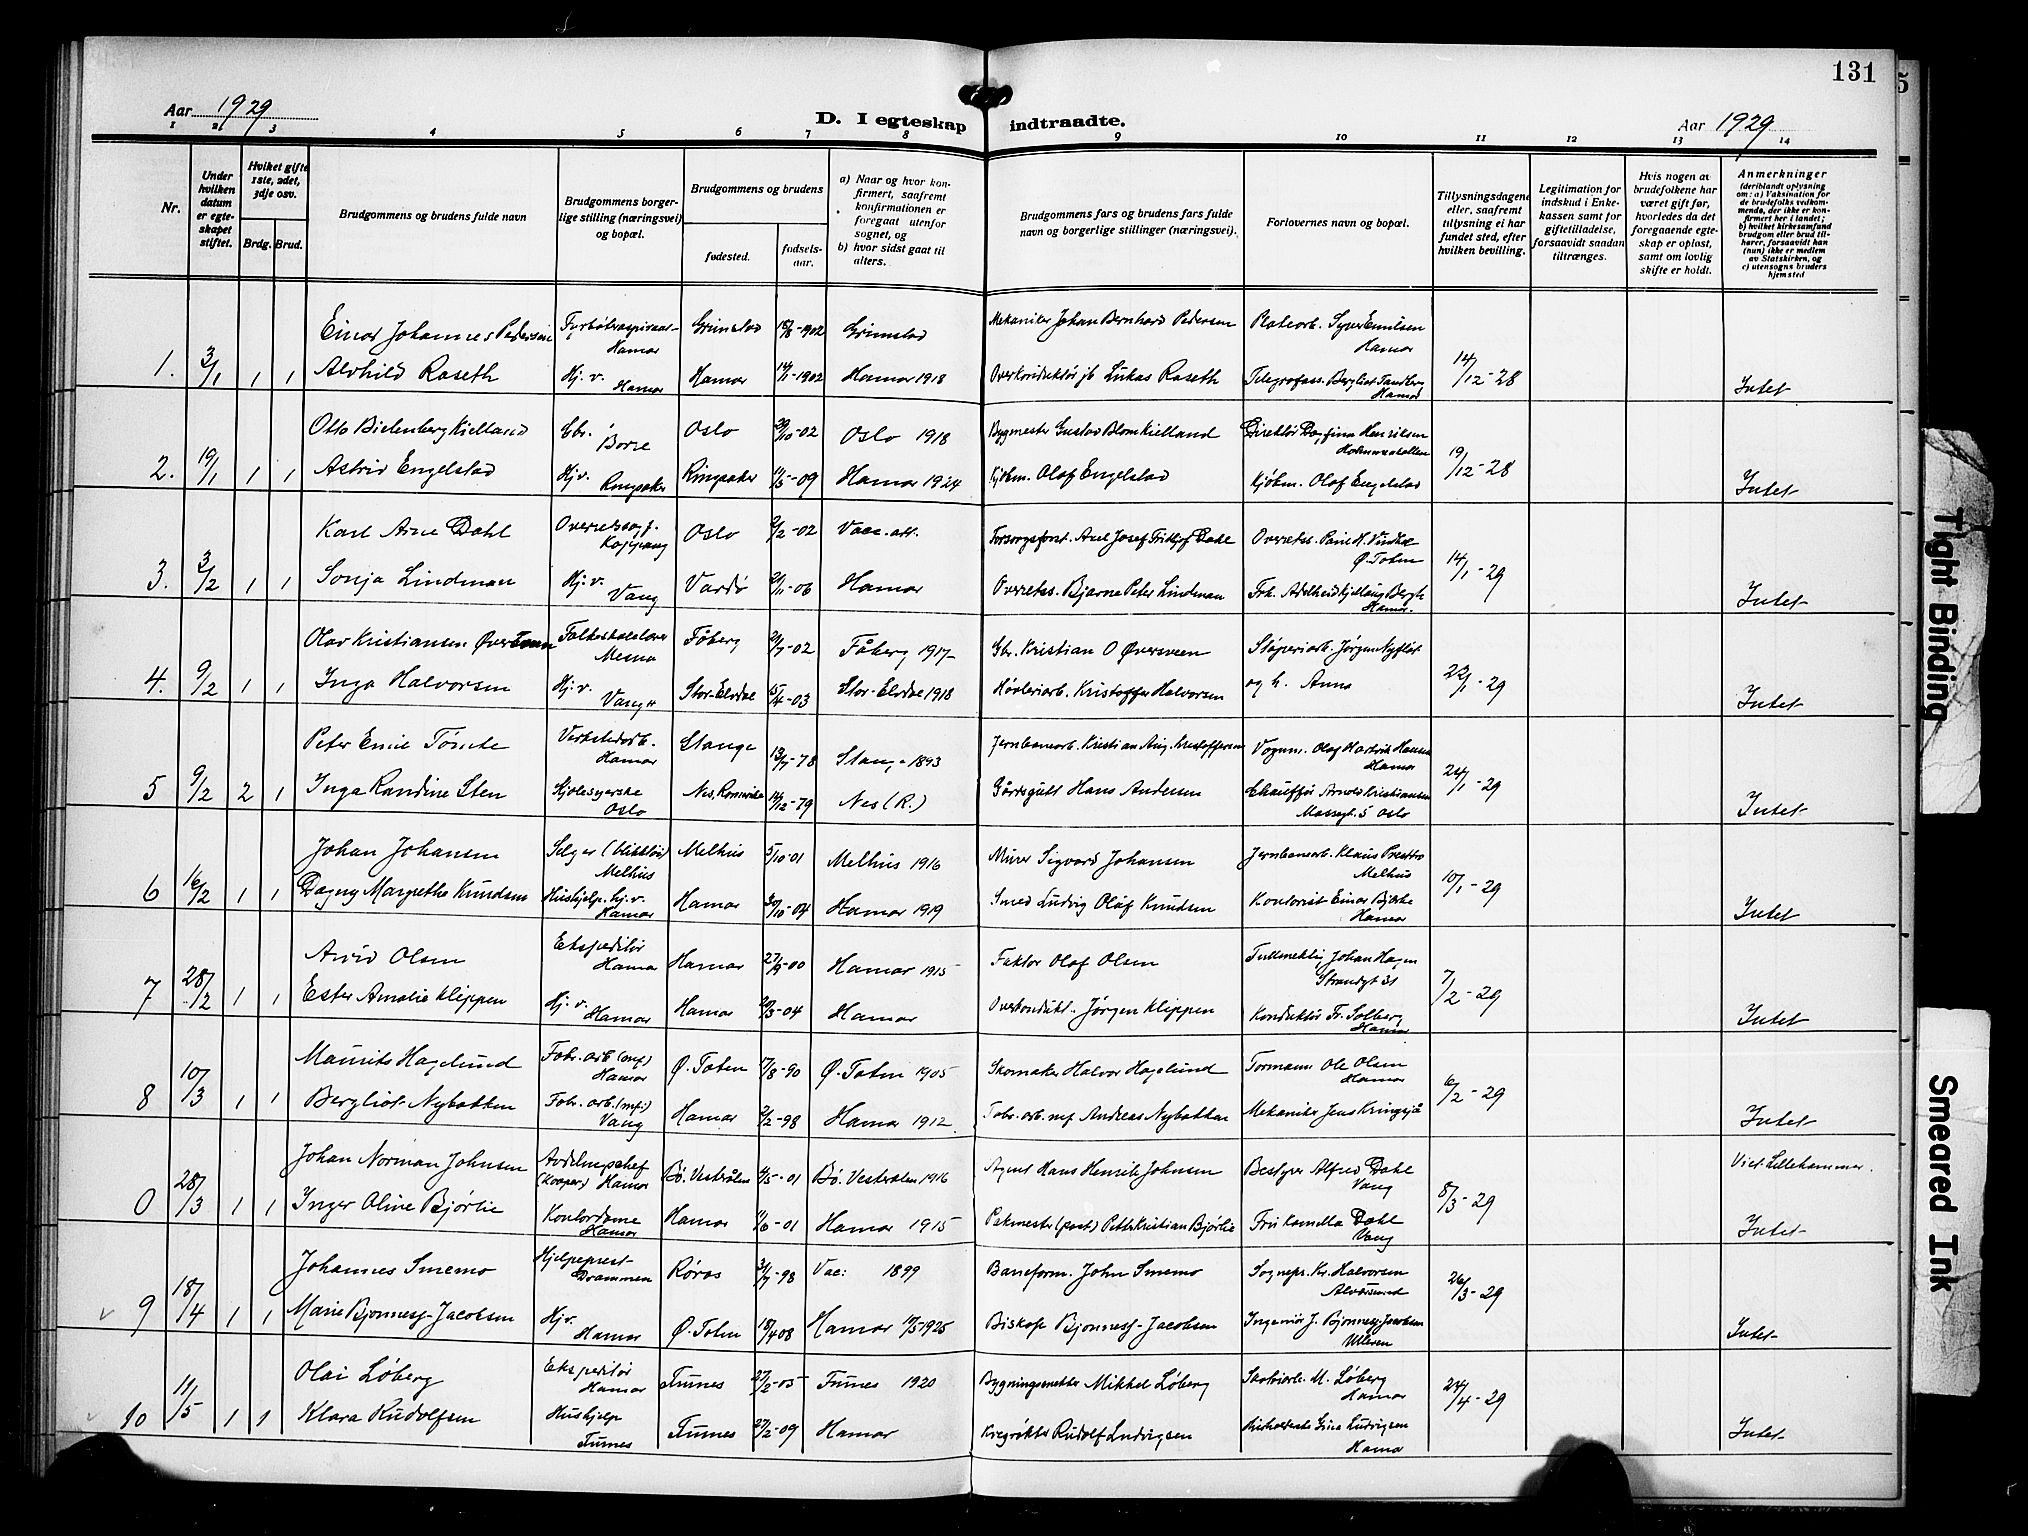 131
Aar 1929
D. I egteskap indtraadte.
Aar 1929
1 2 3 4 5 6 7 8 9 10 11 12 13 14
Nr.
Under hvilken datum er egteskapet stiftet.
Hvilket gifte 1ste, 2det, 3dje osv.
Brdg. Brud.
Brudgommens og brudens fulde navn
Brudgommens borgerlige stilling (næringsvei) og bopæl.
Brudgommens og brudens
fødested.
fødselsaar.
a) Naar og hvor konfirmert, saafremt konfirmationen er foregaat utenfor sognet, og
b) hvor sidst gaat til alters.
Brudgommens fars og brudens fars fulde navn og borgerlige stillinger (næringsvei).
Forlovernes navn og bopæl.
Tillysningsdagene eller, saafremt tillysning ei har fundet sted, efter hvilken bevilling.
Legitimation for indskud i Enkekassen samt for giftetilladelse, forsaavidt saadan tiltrænges.
Hvis nogen av brudefolkene har været gift før, hvorledes da det foregaaende egteskap er opløst, samt om lovlig skifte er holdt.
Anmerkninger
(deriblandt oplysning om: a) Vaksination for de brudefolks vedkommende, der ikke er konfirmert her i landet; b) hvilket kirkesamfund brudgom eller brud tilhører, forsaavidt han (hun) ikke er medlem av Statskirken, og c) utensogns bruders hjemsted
Einar Johannes Pedersen Hamar Grimstad 18/8-1902 Grimstad Mekaniker Johan Bernhard Pedersen Platearb. Syver Emilsen Hamar
1. 3/1 1 1 Alvhild Raseth Hj. v. Hamar Hamar 14/1-1902 Hamar 1918 Overkonduktør jb Lukas Raseth Telegrafass. Bergliot Tandberg Hamar 14/12-28 Intet
Otto Bielenberg Kielland Gbr. Borre Oslo 20/10-02 Oslo 1918 Bygmester Gustav Blom Kielland Direktør Henriksen
2. 19/1 1 1 Astrid Engelstad Hj.v. Ringsaker Ringsaker 11/5-09 Hamar 1924 Kjøbm. Olaf Engelstad Kjøbm. Olaf Engelstad 19/12-28 Intet
Karl Arne Dahl Overretssagf. Koppang Oslo 2/2-02 Vacc. att. Axel Josef Fritjof Dahl Overretss. Ø. Toten
3. 3/2 1 1 Sonja Lindman Hj. v. Vang Vardø 20/11-06 Hamar Overretss. Bjarne Peter Lindman Frk. Adelheid Kjellaug Bergh Hamar. 14/1-29 Intet
Olav Kristiansen Øversveen Folkeskolelærer Mesna Fåberg 21/7-02 Fåberg 1917 Gbr. Kristian O Øversveen Støperiarb. Jørgen Nyfløt
4. 9/2 1 1 Inga Halvorsen Hj. v. Vang H Stor-Elvdal 15/4-03 Stor-Elvdal 1918 Høvleriarb. Kristoffer Halvorsen og h. Anna 22/1-29 Intet
Peter Emil Tomte Verkstedarb. Hamar Stange 13/7-78 Stange 1893 Jernbanearb. Kristian Aug. Kristoffersen Vognm. Olaf Hartvik Hansen Hamar
5 9/2 2 1 Inga Randine Sten Kjolesyerske Oslo Nes, Romerike 14/12-79 Nes (R.) Gårdsgutt Hans Andersen Chauffør Arnold Kristiansen Mossegt. 5 Oslo 24/1-29 Intet
Johan Johansen Selger Melhus Melhus 5/10-01 Melhus 1916 Murer Sigvard Johansen Jernbanearb. Klaus Melhus
6 16/2 1 1 Dagny Margrethe Knudsen Hushjelp. hj. v. Hamar Hamar 30/10-04 Hamar 1919 Smed Ludvig Olaf Knudsen Kontorist Einar Bjerke Hamar 10/1-29 Intet
Arvid Olsen Ekspeditør Hamar Hamar 27/9-00 Hamar 1915 Faktor Olaf Olsen Johan Hagen Strandgt 31
7 28/2 1 1 Ester Amalie Klippen Hj. v. Hamar Hamar 20/3-04 Hamar Overkondukt. Jørgen Klippen Konduktør Fr. Solberg Hamar 7/2-29 Intet
Maurits Hagelund Fabr. arb (mf) Hamar Ø. Toten 17/8-90 Ø. Toten 1905 Skomaker Halvor Hagelund Formann Ole Olsen Hamar
8 10/3 1 1 Bergliot Nybakken Fabr. arb. (mf.) Vang Hamar 2/2-98 Hamar 1912 Fabr. arb. mf Andreas Nybakken Mekaniker Jens Kringsjå 6/2-29 Intet
Johan Norman Johnsen Avdelingschef Hamar Bø. Vesterålen 4/5-01 Bø. Vesterålen 1916 Agent Hans Henrik Johnsen Bestyrer Alfred Dahl Vang Viet: Lillehammer.
0 28/3 1 1 Inger Oline Bjørlie Kontordame Hamar Hamar 11/6-01 Hamar 1915 Pakmester (post) Petter Kristian Bjørlie Fru Kamilla Dahl Vang 8/3-29 Intet
Johannes Smemo Hjelpeprest Drammen Røros 31/7-98 Vac: 1899 Baneform. John Smemo Sognepr. Kr. Halvorsen
9 18/4 1 1 Marie Bjonnes-Jacobsen Hj.v. Hamar Ø. Toten 18/4 08 Hamar 1925 Biskop Bjonnes-Jacobsen Ingeniør J. Bjonnes-Jacobsen Ulleren 26/3-29 Intet
Olai Løberg Ekspeditør Hamar Furnes 27/2-05 Furnes 1920 Bygningssnekker Mikkel Løberg M. Løberg Hamar
10 11/5 1 1 Klara Rudolfsen Hushjelp Furnes Furnes 27/2-09 Hamar Krøtrøkter Rudolf Ludvigsen Ludvigsen Hamar 24/4-29 Intet
Tight Binding
Smeared Ink